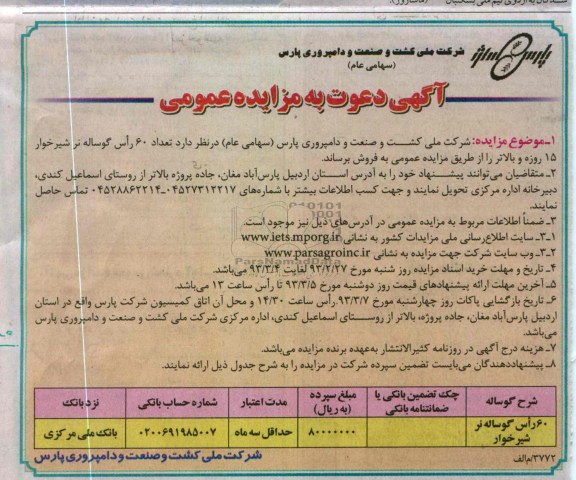 پارس
شرکت ملی کشت و صنعت و دامپروری پارس
(سهامی عام)
آگهی دعوت به مزایده عمومی
۱-موضوع مزایده: شرکت ملی کشت و صنعت و دامپروری پارس (سهامی عام) درنظر دارد تعداد ۶۰ رأس گوساله نر شیرخوار
۱۵ روزه و بالاتر را از طریق مزایده عمومی به فروش برساند.
۲- متقاضیان می‌توانند پیشنهاد خود را به آدرس استان اردبیل پارس‌آباد مغان، جاده پروژه بالاتر از روستای اسماعیل کندی،
دبیرخانه اداره مرکزی تحویل نمایند و جهت کسب اطلاعات بیشتر با شماره‌های ۰۴۵۲۷۳۱۲۲۱۷-۰۴۵۲۸۸۶۲۲۱۴ تماس حاصل
نمایند.
۳- ضمناً اطلاعات مربوط به مزایده عمومی در آدرس‌های ذیل نیز موجود است.
۳-۱- سایت اطلاع‌رسانی ملی مزایدات کشور به نشانی www.iets.mporg.ir
۳-۲- وب سایت شرکت جهت مزایده به نشانی www.parsagroinc.ir
ParsNamadData
۴- تاریخ و مهلت خرید اسناد مزایده روز شنبه مورخ ۹۳/۲/۲۷ لغایت ۹۳/۳/۴ می‌باشد.
۵- آخرین مهلت ارائه پیشنهادهای قیمت روز دوشنبه مورخ ۹۳/۳/۵ تا رأس ساعت ۱۳ می‌باشد.
۶- تاریخ بازگشایی پاکات روز چهارشنبه مورخ ۹۳/۳/۷ رأس ساعت ۱۴/۳۰ و محل آن اتاق کمیسیون شرکت پارس واقع در استان
اردبیل پارس‌آباد مغان، جاده پروژه، بالاتر از روستای اسماعیل کندی، اداره مرکزی شرکت ملی کشت و صنعت و دامپروری پارس
می‌باشد.
۷- هزینه درج آگهی در روزنامه کثیرالانتشار به‌عهده برنده مزایده می‌باشد.
۸- پیشنهاددهندگان می‌بایست تضمین سپرده شرکت در مزایده را به شرح جدول ذیل ارائه نمایند.
شرح گوساله چک تضمین بانکی یا ضمانتنامه بانکی مبلغ سپرده (به ریال) مدت اعتبار شماره حساب بانکی نزد بانک
۶۰ رأس گوساله نر شیرخوار ۸۰۰۰۰۰۰۰ حداقل سه ماه ۰۲۰۰۶۹۱۹۸۵۰۰۷ بانک ملی مرکزی
۳۷۷۲/م‌الف شرکت ملی کشت و صنعت و دامپروری پارس